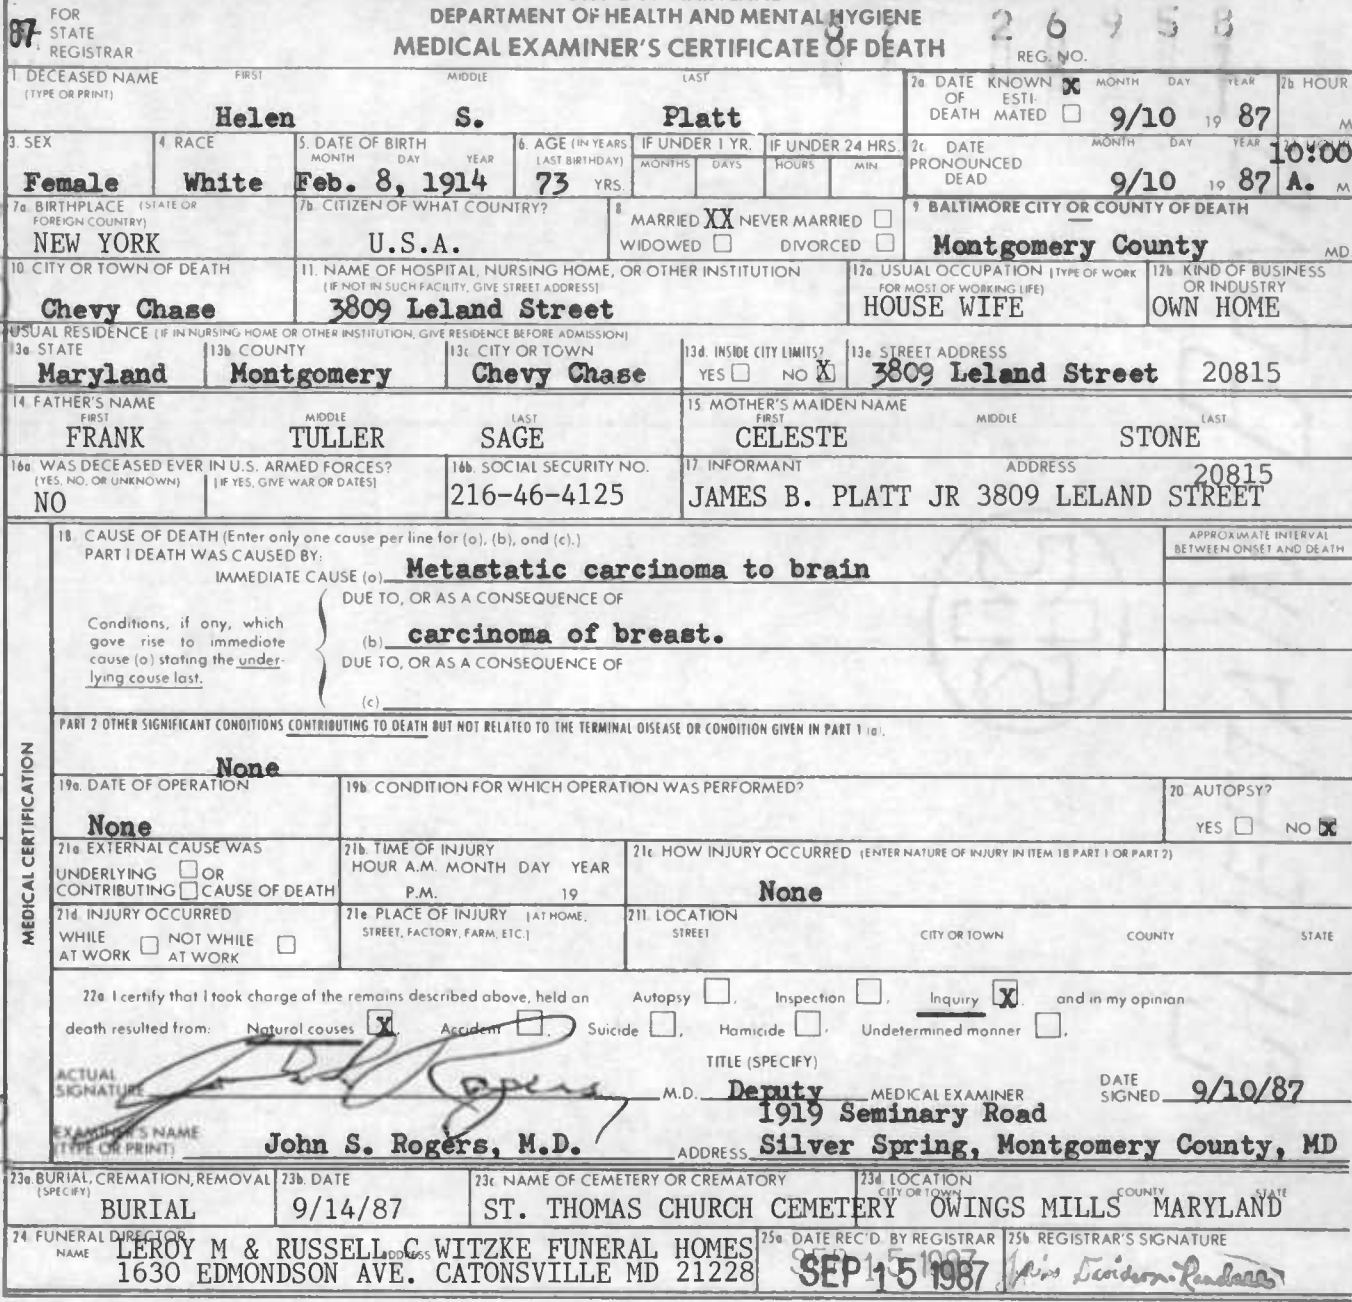 FOR STATE REGISTRAR
87
DEPARTMENT OF HEALTH AND MENTAL HYGIENE
MEDICAL EXAMINER'S CERTIFICATE OF DEATH
87 26958
REG. NO.
1. DECEASED NAME (TYPE OR PRINT) FIRST MIDDLE LAST
Helen S. Platt
2a. DATE OF DEATH KNOWN X ESTIMATED MONTH DAY YEAR
9/10 19 87
2b. HOUR M
3. SEX
Female
4. RACE
White
5. DATE OF BIRTH MONTH DAY YEAR
Feb. 8, 1914
6. AGE (IN YEARS LAST BIRTHDAY)
73 YRS.
IF UNDER 1 YR. MONTHS DAYS
IF UNDER 24 HRS. HOURS MIN
2c. DATE PRONOUNCED DEAD MONTH DAY YEAR
9/10 19 87
10:00 A. M
7a. BIRTHPLACE (STATE OR FOREIGN COUNTRY)
NEW YORK
7b. CITIZEN OF WHAT COUNTRY?
U.S.A.
8 MARRIED XX NEVER MARRIED
WIDOWED DIVORCED
9. BALTIMORE CITY OR COUNTY OF DEATH
Montgomery County MD.
10. CITY OR TOWN OF DEATH
Chevy Chase
11. NAME OF HOSPITAL, NURSING HOME, OR OTHER INSTITUTION
(IF NOT IN SUCH FACILITY, GIVE STREET ADDRESS)
3809 Leland Street
12a. USUAL OCCUPATION (TYPE OF WORK FOR MOST OF WORKING LIFE)
HOUSE WIFE
12b. KIND OF BUSINESS OR INDUSTRY
OWN HOME
USUAL RESIDENCE (IF IN NURSING HOME OR OTHER INSTITUTION, GIVE RESIDENCE BEFORE ADMISSION)
13a. STATE
Maryland
13b. COUNTY
Montgomery
13c. CITY OR TOWN
Chevy Chase
13d. INSIDE CITY LIMITS?
YES NO X
13e. STREET ADDRESS
3809 Leland Street 20815
14. FATHER'S NAME FIRST MIDDLE LAST
FRANK TULLER SAGE
15. MOTHER'S MAIDEN NAME FIRST MIDDLE LAST
CELESTE STONE
16a. WAS DECEASED EVER IN U.S. ARMED FORCES?
(YES, NO, OR UNKNOWN) (IF YES, GIVE WAR OR DATES)
NO
16b. SOCIAL SECURITY NO.
216-46-4125
17. INFORMANT ADDRESS
20815
JAMES B. PLATT JR 3809 LELAND STREET
MEDICAL CERTIFICATION
18. CAUSE OF DEATH (Enter only one cause per line for (a), (b), and (c).)
PART I DEATH WAS CAUSED BY:
APPROXIMATE INTERVAL BETWEEN ONSET AND DEATH
IMMEDIATE CAUSE (a) Metastatic carcinoma to brain
DUE TO, OR AS A CONSEQUENCE OF
Conditions, if any, which gave rise to immediate cause (a) stating the underlying cause last.
(b) carcinoma of breast.
DUE TO, OR AS A CONSEQUENCE OF
(c)
PART 2 OTHER SIGNIFICANT CONDITIONS CONTRIBUTING TO DEATH BUT NOT RELATED TO THE TERMINAL DISEASE OR CONDITION GIVEN IN PART 1 (a).
None
19a. DATE OF OPERATION
None
19b. CONDITION FOR WHICH OPERATION WAS PERFORMED?
20. AUTOPSY?
YES NO X
21a. EXTERNAL CAUSE WAS
UNDERLYING OR
CONTRIBUTING CAUSE OF DEATH
21b. TIME OF INJURY
HOUR A.M. MONTH DAY YEAR
P.M. 19
21c. HOW INJURY OCCURRED (ENTER NATURE OF INJURY IN ITEM 18 PART 1 OR PART 2)
None
21d. INJURY OCCURRED
WHILE AT WORK NOT WHILE AT WORK
21e. PLACE OF INJURY (AT HOME, STREET, FACTORY, FARM, ETC.)
21f. LOCATION
STREET CITY OR TOWN COUNTY STATE
22a. I certify that I took charge of the remains described above, held an Autopsy, Inspection, Inquiry X, and in my opinion
death resulted from: Natural causes X, Accident, Suicide, Homicide, Undetermined manner.
ACTUAL SIGNATURE John S Rogers M.D.
TITLE (SPECIFY)
Deputy MEDICAL EXAMINER
DATE SIGNED 9/10/87
1919 Seminary Road
EXAMINER'S NAME (TYPE OR PRINT) John S. Rogers, M.D.
ADDRESS Silver Spring, Montgomery County, MD
23a. BURIAL, CREMATION, REMOVAL (SPECIFY)
BURIAL
23b. DATE
9/14/87
23c. NAME OF CEMETERY OR CREMATORY
ST. THOMAS CHURCH CEMETERY
23d. LOCATION CITY OR TOWN COUNTY STATE
OWINGS MILLS MARYLAND
24. FUNERAL DIRECTOR NAME ADDRESS
LEROY M & RUSSELL C WITZKE FUNERAL HOMES
1630 EDMONDSON AVE. CATONSVILLE MD 21228
25a. DATE REC'D. BY REGISTRAR
SEP 15 1987
25b. REGISTRAR'S SIGNATURE